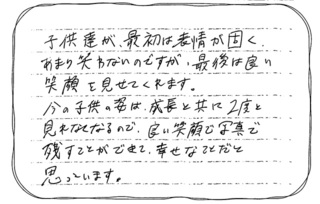 子供達が、最初は表情が固く、
あまり笑わないのですが、最後は良い
笑顔を見せてくれます。
今の子供の姿は、成長と共に2度と
見れなくなるので、良い笑顔で写真で
残すことができて、幸せなことだと
思っています。